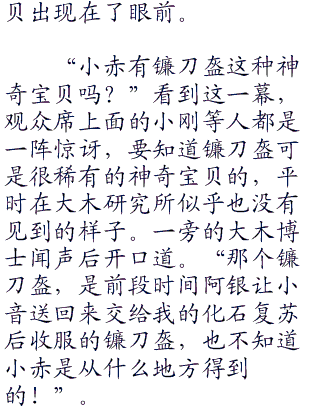 贝出现在了眼前。
“小赤有镰刀盔这种神
奇宝贝吗？”看到这一幕，
观众席上面的小刚等人都是
一阵惊讶，要知道镰刀盔可
是很稀有的神奇宝贝的，平
时在大木研究所似乎也没有
见到的样子。一旁的大木博
士闻声后开口道。“那个镰
刀盔，是前段时间阿银让小
音送回来交给我的化石复苏
后收服的镰刀盔，也不知道
小赤是从什么地方得到
的！”。